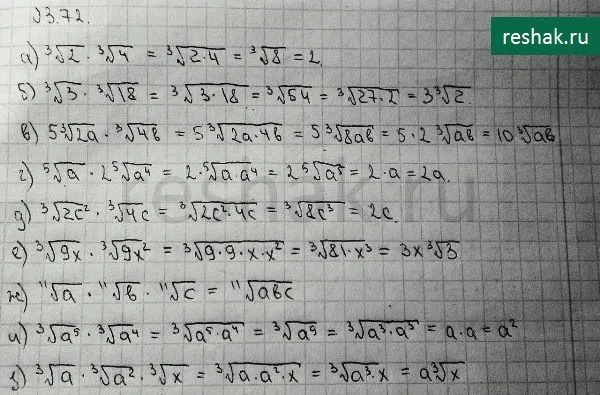 №3.72.
reshak.ru
а) ³√2 · ³√4 = ³√(2·4) = ³√8 = 2.
б) ³√3 · ³√18 = ³√(3·18) = ³√54 = ³√(27·2) = 3³√2.
в) 5³√(2a) · ³√(4b) = 5³√(2a·4b) = 5³√(8ab) = 5·2³√(ab) = 10³√(ab)
г) ⁵√a · 2⁵√(a⁴) = 2·⁵√(a·a⁴) = 2⁵√(a⁵) = 2·a = 2a.
д) ³√(2c²) · ³√(4c) = ³√(2c²·4c) = ³√(8c³) = 2c.
е) ³√(9x) · ³√(9x²) = ³√(9·9·x·x²) = ³√(81·x³) = 3x³√3
ж) ¹¹√a · ¹¹√b · ¹¹√c = ¹¹√(abc)
и) ³√(a⁵) · ³√(a⁴) = ³√(a⁵·a⁴) = ³√(a⁹) = ³√(a³·a³) = a·a = a²
з) ³√a · ³√(a²) · ³√x = ³√(a·a²·x) = ³√(a³·x) = a³√x
reshak.ru